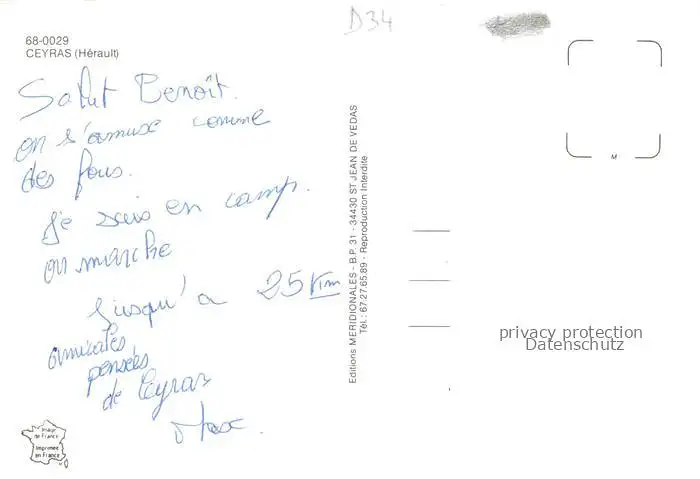 D34
68-0029
CEYRAS (Hérault)
Salut Benoît.
on s'amuse comme
des fous.
je suis en camp.
on marche
jusqu'a 25 Km
amicales
pensées
de Ceyras
Max.
Editions MERIDIONALES - B.P. 31 - 34430 ST JEAN DE VEDAS
Tél. : 67.27.65.89 - Reproduction Interdite
M
privacy protection
Datenschutz
Image
de France
Imprimée
en France